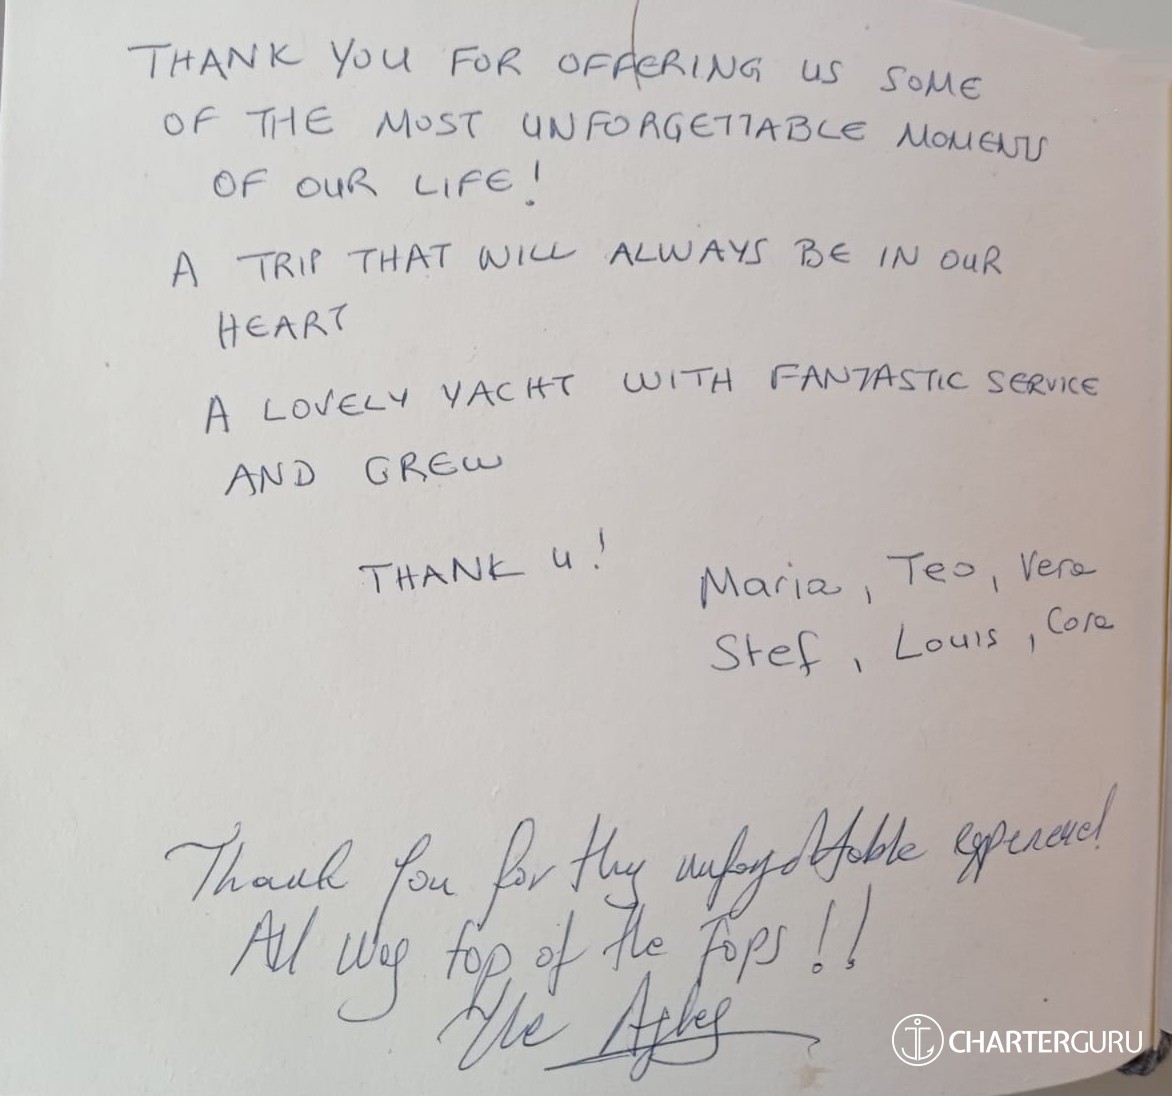 THANK YOU FOR OFFERING US SOME
OF THE MOST UNFORGETTABLE MOMENTS
OF OUR LIFE!
A TRIP THAT WILL ALWAYS BE IN OUR
HEART
A LOVELY YACHT WITH FANTASTIC SERVICE
AND GREW
THANK U!
Maria, Teo, Vera
Stef, Louis, Cora
Thank You for thy unforgettable
All was top of the Tops!!
The
CHARTERGURU